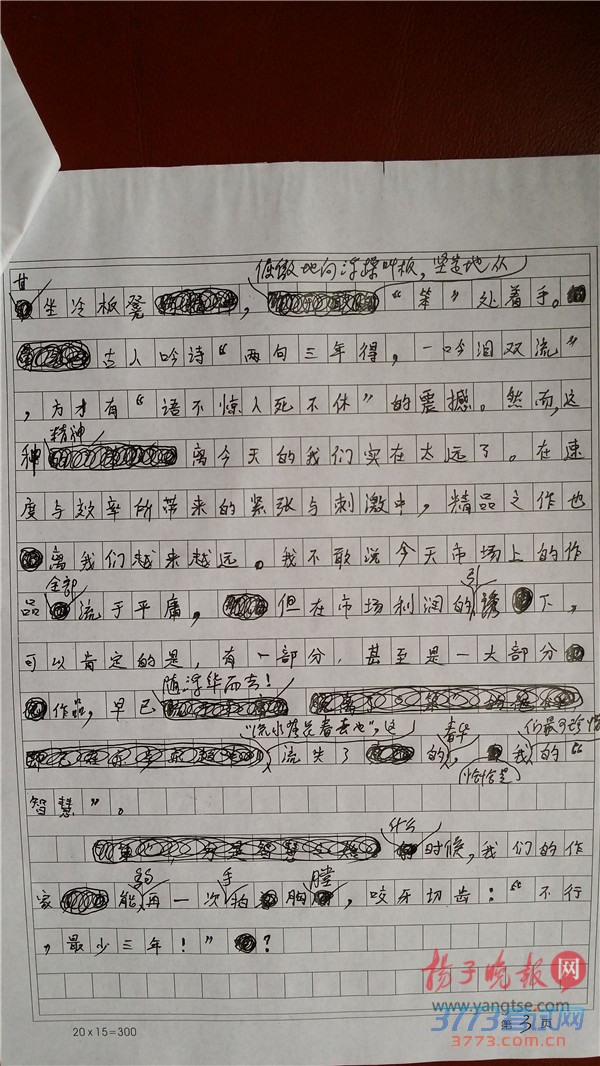 甘坐冷板凳，倨傲地向浮躁叫板，坚定地从“笨”处着手。
古人吟诗“两句三年得，一吟泪双流”
，方才有“语不惊人死不休”的震撼。然而，这
种精神离今天的我们实在太远了。在速
度与效率所带来的紧张与刺激中，精品之作也
离我们越来越远。我不敢说今天市场上的作
品全部流于平庸，但在市场利润的引诱下，
可以肯定的是，有一部分，甚至是一大部分
作品，早已随浮华而去！
“流水落花春去也”，这流失了的，春华恰恰是我们最可珍惜的“
智慧”。
什么时候，我们的作
家能够再一次手拍胸膛，咬牙切齿：“不行
，最少三年！”？
20×15=300
第 3 页
扬子晚报网
www.yangtse.com
3773考试网
3773.com.cn